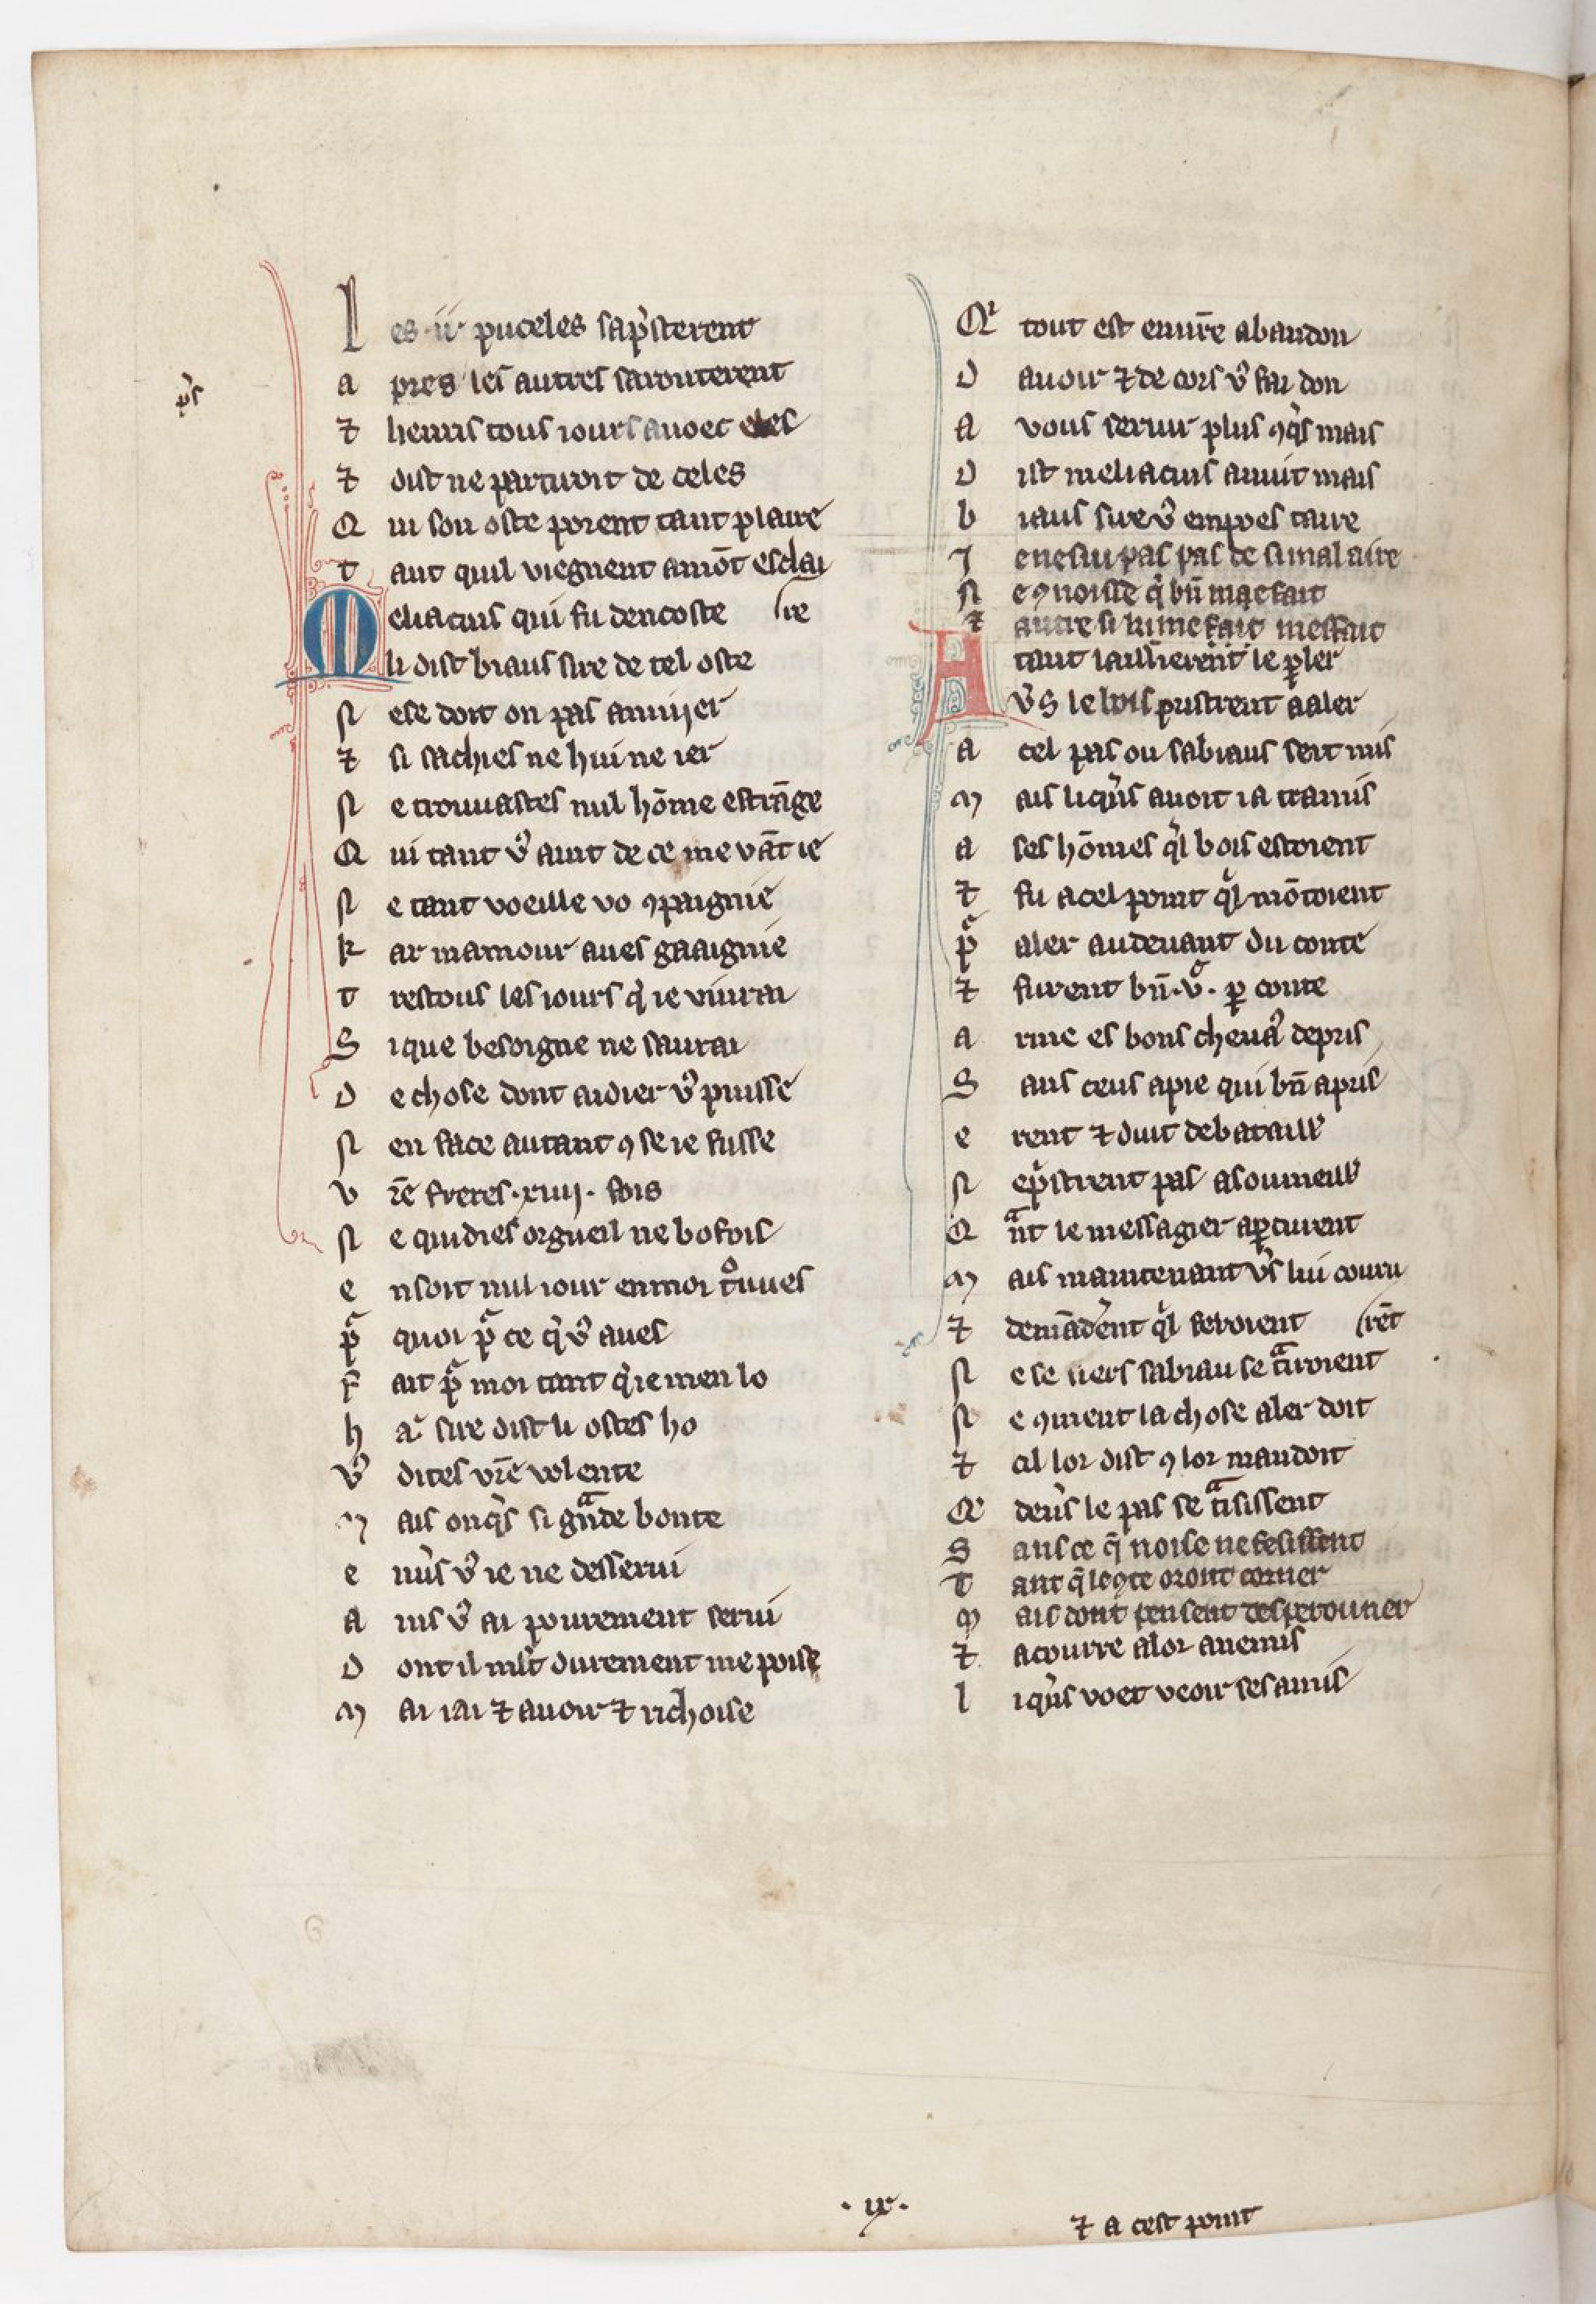 Les .ii. puceles sap̾sterent
a pres les autres sarouterent
⁊ henris tous iours auoec eles
⁊ dist ne partiroit de celes
Q ui son oste porent tant plaire
t ant quil viegnent amōt esclai
Meliacins qui fu dencoste re
li dist biaus sire de tel oste
N ese doit on pas anuijer
⁊ si sachies ne hui ne ier
N e trouuastes nul hōme estrāge
Q ui tant v̾ aint de ce me vāt ie
N e tant voeille vo ꝯpaignie
k ar mamour aues gaaignie
t restous les iours q̾ ie viurai
S ique besoigne ne saurai
D e chose dont aidier v̾ puisse
N en face autant ꝯ se ie fusse
v r̄e freres .xiiij. fois
N e quidies orgueil ne bofois
e nsoit nul iour enmoi t͛ouues
p͛ quoi p͛ ce q̾ v̾ aues
F ait p͛ moi tant q̾ ie men lo
h a sire dist li ostes ho
v̾ dites vr̄e volente
M ais onq̾s si gᷓnde bonte
e nuⁱs v̾ ie ne desserui
a ins v̾ ai pourement serui
D ont il mlt̄ durement me poise
M ai iai ⁊ auoir ⁊ richoise
Qⁱ tout est enur̄e abandon
D auoir ⁊ de cors v̾ fai don
A vous seruir plus ꝯq̾s mais
D ist meliacins amit mais
b iaus sire v̾ empoes taire
J enesui pas pas de simal aire
N e ꝯnoisse q̾ bn̄ mae fait
⁊ autre si kime fait meffait
Atant laissierent le ꝑler
v̾s le bois pristrent a aler
A cel pas ou sabiaus sert mis
M ais liq̾ns auoit ia tramis
a ses hōmes q̾l bois estoient
⁊ fu acel point q̾l mōtoient
p͛ aler audeuant du conte
⁊ furent bn̄ .v. ꝑ conte
a rme es bons cheua͛ depris
S ans ceus apie qui bn̄ apris
e rent ⁊ duit debataille
N ep̾strent pas asoumeille
Q ᷓnt le messagier aꝑcurent
M ais maintenant v̾s lui couru
⁊ demād̾ent q̾l feroient rēt
N e se uers sabiau se tᷓiroient
N e ꝯment la chose aler doit
⁊ cil lor dist ꝯ lor mandoit
Qe deu̾s le pas se tᷓisissent
S ans ce q̄ noise ne fesissent
T ant q̄ le ꝯte oront corner
M ais dont pensent desperouner
⁊ acourre alor anemis
l iq̾ns voet veoir ses amis
.ix.
⁊ a cest point